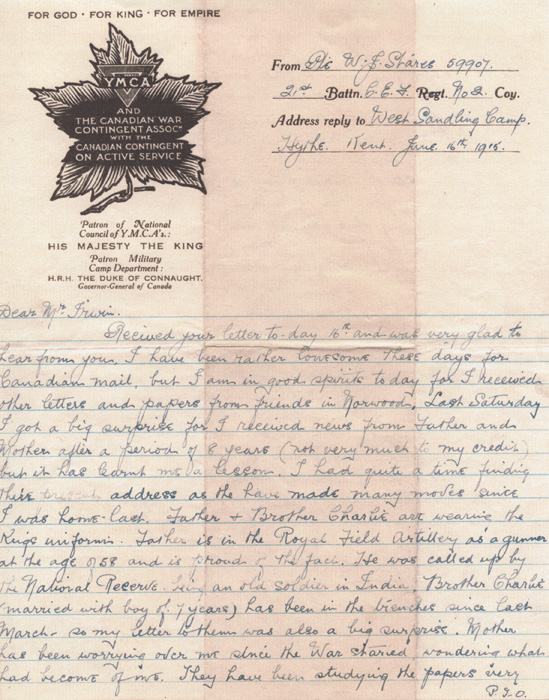 FOR GOD · FOR KING · FOR EMPIRE
YMCA
AND
THE CANADIAN WAR
CONTINGENT ASSOCN
WITH THE
CANADIAN CONTINGENT
ON ACTIVE SERVICE
Patron of National
Council of Y.M.C.A's.:
HIS MAJESTY THE KING
Patron Military
Camp Department:
H.R.H. THE DUKE OF CONNAUGHT.
Governor-General of Canada
From Pte W. J. Shares 59907.
21st Battn. C.E.F. Regt. No 2. Coy.
Address reply to West Sandling Camp.
Hythe. Kent. June 16th 1915.
Dear Mr Irwin.
Recived your letter to-day 16th and was very glad to
hear from you. I have been rather lonesome these days for
Canadian mail, but I am in good spirits today for I received
other letters and papers from friends in Norwood. Last Saturday
I got a big surprise for I received news from Father and
Mother after a period of 8 years (not very much to my credit)
but it has learnt me a lesson. I had quite a time finding
their present address as the have made many moves since
I was home last. Father + Brother Charlie are wearing the
Kings uniform. Father is in the Royal Field Artillery as a gunner
at the age of 58 and is proud of the fact. He was called up by
the National Reserve being an old soldier in India. Brother Charlie
(married with boy of 7 years) has been in the trenches since last
March- so my letter to them was also a big surprise. Mother
has been worrying over me since the War started wondering what
had become of me. They have been studying the papers very
P.T.O.